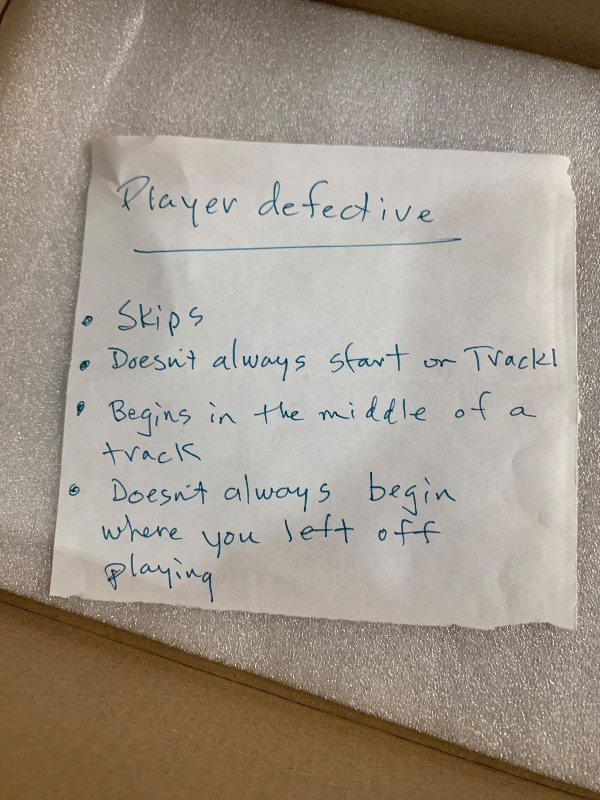 Player defective
• Skips
• Doesn't always start on Track1
• Begins in the middle of a
track
• Doesn't always begin
where you left off
playing